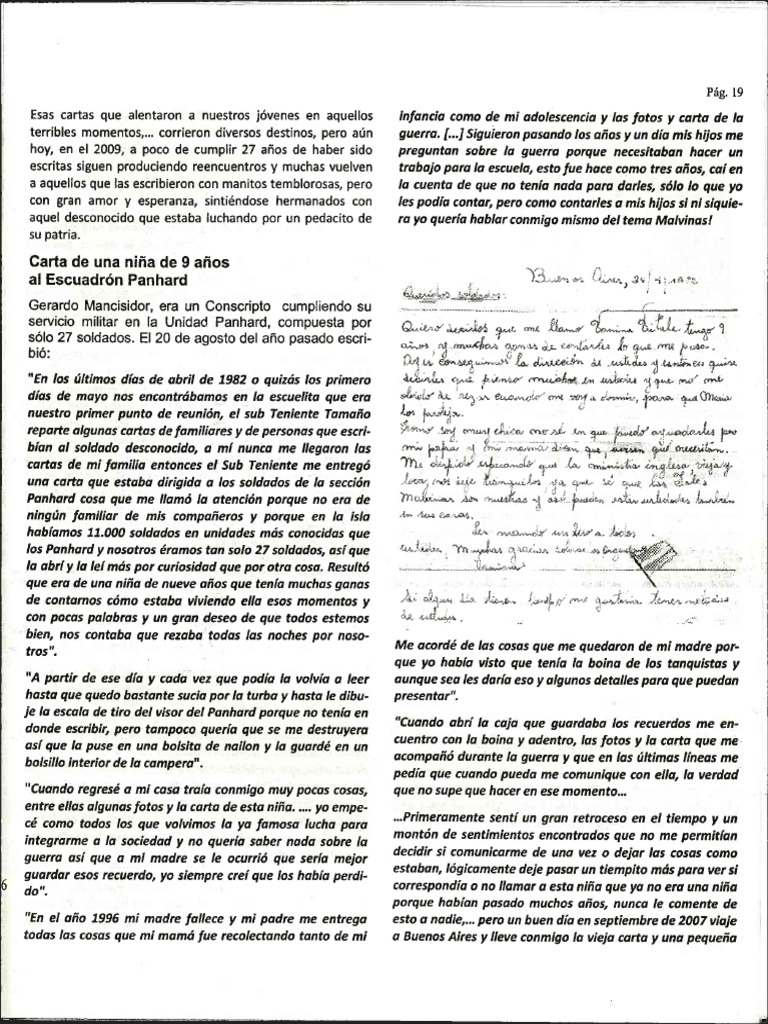 Pág. 19
Esas cartas que alentaron a nuestros jóvenes en aquellos
terribles momentos,... corrieron diversos destinos, pero aún
hoy, en el 2009, a poco de cumplir 27 años de haber sido
escritas siguen produciendo reencuentros y muchas vuelven
a aquellos que las escribieron con manitos temblorosas, pero
con gran amor y esperanza, sintiéndose hermanados con
aquel desconocido que estaba luchando por un pedacito de
su patria.
Carta de una niña de 9 años
al Escuadrón Panhard
Gerardo Mancisidor, era un Conscripto cumpliendo su
servicio militar en la Unidad Panhard, compuesta por
sólo 27 soldados. El 20 de agosto del año pasado escri-
bió:
"En los últimos días de abril de 1982 o quizás los primero
días de mayo nos encontrábamos en la escuelita que era
nuestro primer punto de reunión, el sub Teniente Tamaño
reparte algunas cartas de familiares y de personas que escri-
bían al soldado desconocido, a mí nunca me llegaron las
cartas de mi familia entonces el Sub Teniente me entregó
una carta que estaba dirigida a los soldados de la sección
Panhard cosa que me llamó la atención porque no era de
ningún familiar de mis compañeros y porque en la isla
habíamos 11.000 soldados en unidades más conocidas que
los Panhard y nosotros éramos tan solo 27 soldados, así que
la abrí y la leí más por curiosidad que por otra cosa. Resultó
que era de una niña de nueve años que tenía muchas ganas
de contarnos cómo estaba viviendo ella esos momentos y
con pocas palabras y un gran deseo de que todos estemos
bien, nos contaba que rezaba todas las noches por noso-
tros".
"A partir de ese día y cada vez que podía la volvía a leer
hasta que quedo bastante sucia por la turba y hasta le dibu-
je la escala de tiro del visor del Panhard porque no tenía en
donde escribir, pero tampoco quería que se me destruyera
así que la puse en una bolsita de nailon y la guardé en un
bolsillo interior de la campera".
"Cuando regresé a mi casa traía conmigo muy pocas cosas,
entre ellas algunas fotos y la carta de esta niña. .... yo empe-
cé como todos los que volvimos la ya famosa lucha para
integrarme a la sociedad y no quería saber nada sobre la
guerra así que a mi madre se le ocurrió que sería mejor
guardar esos recuerdo, yo siempre creí que los había perdi-
do".
"En el año 1996 mi madre fallece y mi padre me entrega
todas las cosas que mi mamá fue recolectando tanto de mi
6
infancia como de mi adolescencia y las fotos y carta de la
guerra. [...] Siguieron pasando los años y un día mis hijos me
preguntan sobre la guerra porque necesitaban hacer un
trabajo para la escuela, esto fue hace como tres años, caí en
la cuenta de que no tenía nada para darles, sólo lo que yo
les podía contar, pero como contarles a mis hijos si ni siquie-
ra yo quería hablar conmigo mismo del tema Malvinas!
Buenos Aires,
Queridos soldados:
Quiero decirles que me llamo tengo 9
años, y muchas ganas de contarles lo que me pasa.
conseguimos la dirección de ustedes y entonces quise
decirles que pienso mucho en ustedes y que no me
olvido de rezar cuando me voy a dormir, para que María
los proteja.
Como soy muy chica no sé en que puedo ayudarles pero
mi papá y mi mamá dicen que avisen qué necesitan.
Me despido esperando que la ministra inglesa, vieja y
loca, nos deje tranquilos ya que sé que las
Malvinas son nuestras y así pueden estar ustedes también
en sus casas.
Les mando un beso a todos
ustedes. Muchas gracias
Si algún día tienen tiempo me gustaría tener noticias
de ustedes.
Me acordé de las cosas que me quedaron de mi madre por-
que yo había visto que tenía la boina de los tanquistas y
aunque sea les daría eso y algunos detalles para que puedan
presentar".
"Cuando abrí la caja que guardaba los recuerdos me en-
cuentro con la boina y adentro, las fotos y la carta que me
acompañó durante la guerra y que en las últimas líneas me
pedía que cuando pueda me comunique con ella, la verdad
que no supe que hacer en ese momento...
...Primeramente sentí un gran retroceso en el tiempo y un
montón de sentimientos encontrados que no me permitían
decidir si comunicarme de una vez o dejar las cosas como
estaban, lógicamente deje pasar un tiempito más para ver si
correspondía o no llamar a esta niña que ya no era una niña
porque habían pasado muchos años, nunca le comente de
esto a nadie,... pero un buen día en septiembre de 2007 viaje
a Buenos Aires y lleve conmigo la vieja carta y una pequeña